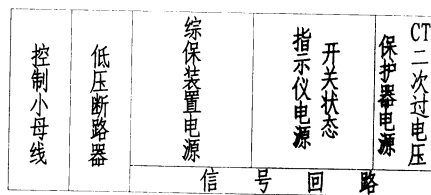 控制小母线
低压断路器
综保装置电源
开关状态
指示仪电源
CT二次过电压
保护器电源
信号回路